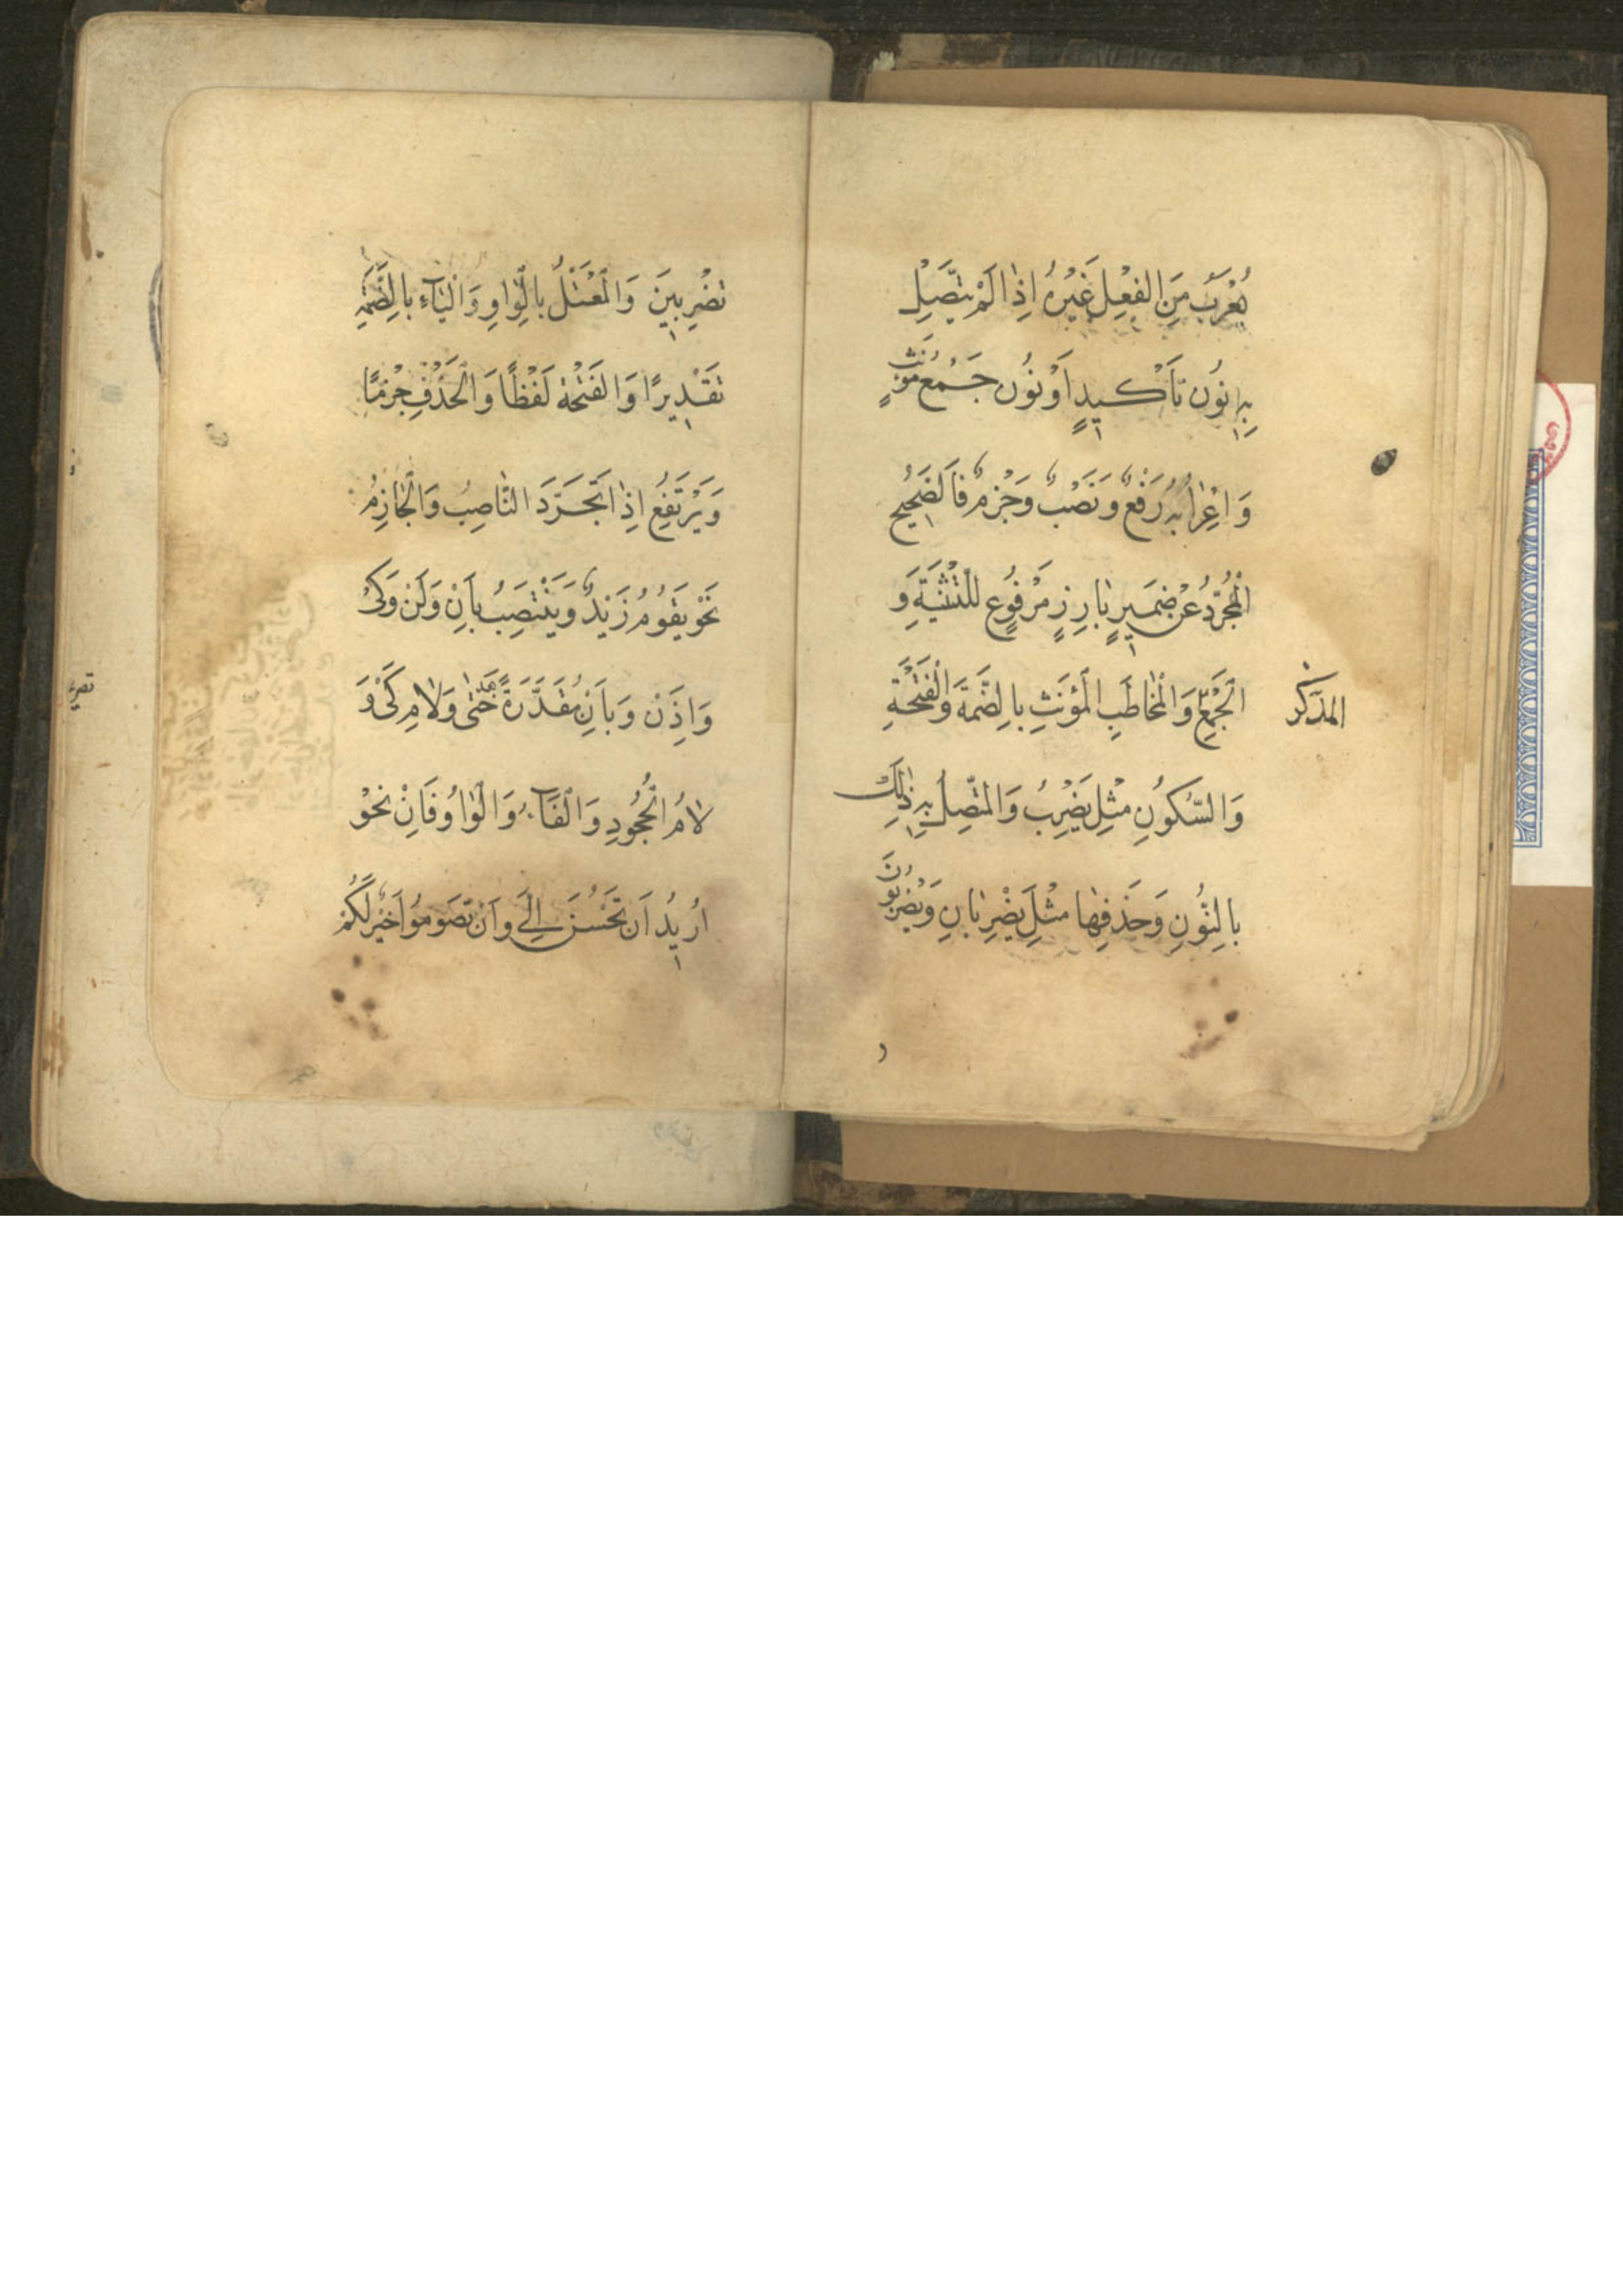 يُعْرَبُ مِنَ الفِعْلِ غَيْرُهُ اِذٰا لَمْ يَتَّصِلْ
بِهِ نوُن تَأكْيدٍ اَوْ نوُن جَمْع مُؤَنَّثٍ
وَ اِعْرٰابُهُ رَفْعٌ وَ نَصْبٌ وَ جَزْمٌ فَالصَّحيحُ
الْمُجَرَّدُ عَنْ ضَميرٍ بٰارِزٍ مَرْفوُعٍ لِلتَّثْنِيَةِ وَ
الْجَمْعِ وَ الْمُخٰاطَبِ الْمُؤَنَّثِ بِالضَّمَّةِ وَ الْفَتْحَةِ
المذكر
وَ السُّكوُنِ مِثْل يَضْرِبُ وَ المتَّصِلُ بِهِ ذٰلِكَ
بِالنّوُنِ وَ حَذْفِهٰا مِثْلَ يَضْرِبٰانِ وَ يَضْرِبوُنَ
تَضْرِبينَ وَ الْمُعْتَلُّ بِالْوٰاوِ وَ الْيٰاءِ بِالضَّمَّةِ
تَقْديرًا وَ الفَتْحَة لَفْظًا وَ الْحَذْفِ جَزْمًا
وَ يَرْتَفِعُ اِذٰا تَجَرَّدَ النّٰاصِبُ وَ الْجٰازِمُ
نَحْو يَقوُمُ زَيْدٌ وَ يَنْتَصِبُ بِاَنْ وَ لَنْ وَ كَيْ
وَ اِذَنْ وَ بِاَنْ مُقَدَّرَةً بَعْدَ حَتّٰى وَ لٰامِ كَيْ وَ
لٰامُ الْجُحوُدِ وَ الْفَاءُ وَ الْوٰاوُ فَاَنْ نَحْوُ
اُريدُ اَن تَحْسُنَ اِلَيَّ وَ اَنْ تَصوُموُا خَيْرٌ لَكُمْ